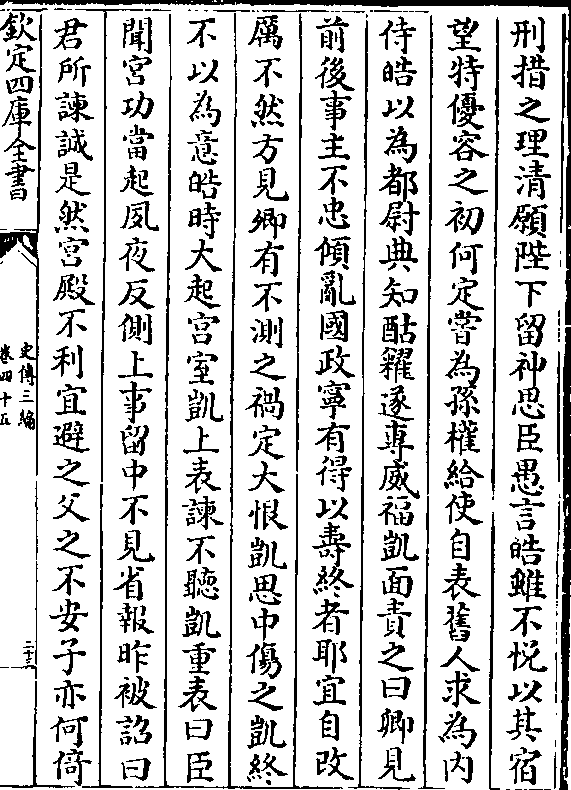 刑措之理清願陛下留神思臣愚言皓雖不悅以其宿
望特優容之初何定嘗為孫權給使自表舊人求為內
侍皓以為都尉典知酤糴遂專威福凱面責之曰卿見
前後事主不忠傾亂國政寧有得以壽終者耶宜自改
厲不然方見卿有不測之禍定大恨凱思中傷之凱終
不以為意皓時大起宮室凱上表諫不聽凱重表曰臣
聞宮功當起夙夜反側上事留中不見省報昨被詔曰
君所諫誠是然宮殿不利宜避之父之不安子亦何倚
欽定四庫全書
史傳三編
卷四十五
二十三